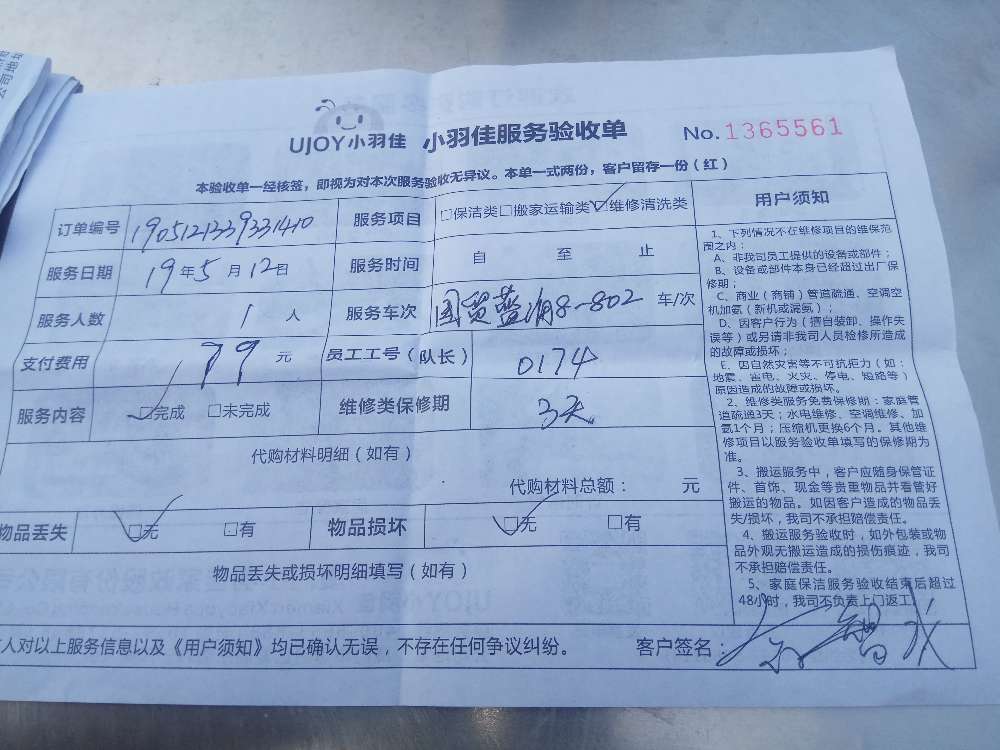 UJOY小羽佳 小羽佳服务验收单 No.1365561
本验收单一经核签,即视为对本次服务验收无异议。本单一式两份,客户留存一份(红)
订单编号 190512133933410 服务项目 □保洁类□搬家运输类☑维修清洗类
服务日期 19年5月12日 服务时间 自 至 止
服务人数 1人 服务车次 国贸蓝湖8-802 车/次
支付费用 79元 员工工号(队长) 0174
服务内容 ☑完成 □未完成 维修类保修期 3天
代购材料明细(如有)
代购材料总额: 元
物品丢失 ☑无 □有 物品损坏 ☑无 □有
物品丢失或损坏明细填写(如有)
人对以上服务信息以及《用户须知》均已确认无误,不存在任何争议纠纷。 客户签名:
用户须知
1、下列情况不在维修项目的维保范
围之内:
A、非我司员工提供的设备或部件;
B、设备或部件本身已经超过出厂保
修期;
C、商业(商铺)管道疏通、空调空
机加氨(新机或漏氨);
D、因客户行为(擅自装卸、操作失
误等)或另请非我司人员检修所造成
的故障或损坏;
E、因自然灾害等不可抗拒力(如:
地震、雷电、火灾、停电、短路等)
原因造成的故障或损坏。
2、维修类服务免费保修期:家庭管
道疏通3天;水电维修、空调维修、加
氨1个月;压缩机更换6个月。其他维
修项目以服务验收单填写的保修期为
准。
3、搬运服务中,客户应随身保管证
件、首饰、现金等贵重物品并看管好
搬运的物品。如因客户造成的物品丢
失/损坏,我司不承担赔偿责任。
4、搬运服务验收时,如外包装或物
品外观无搬运造成的损伤痕迹,我司
不承担赔偿责任。
5、家庭保洁服务验收结束后超过
48小时,我司不负责上门返工。